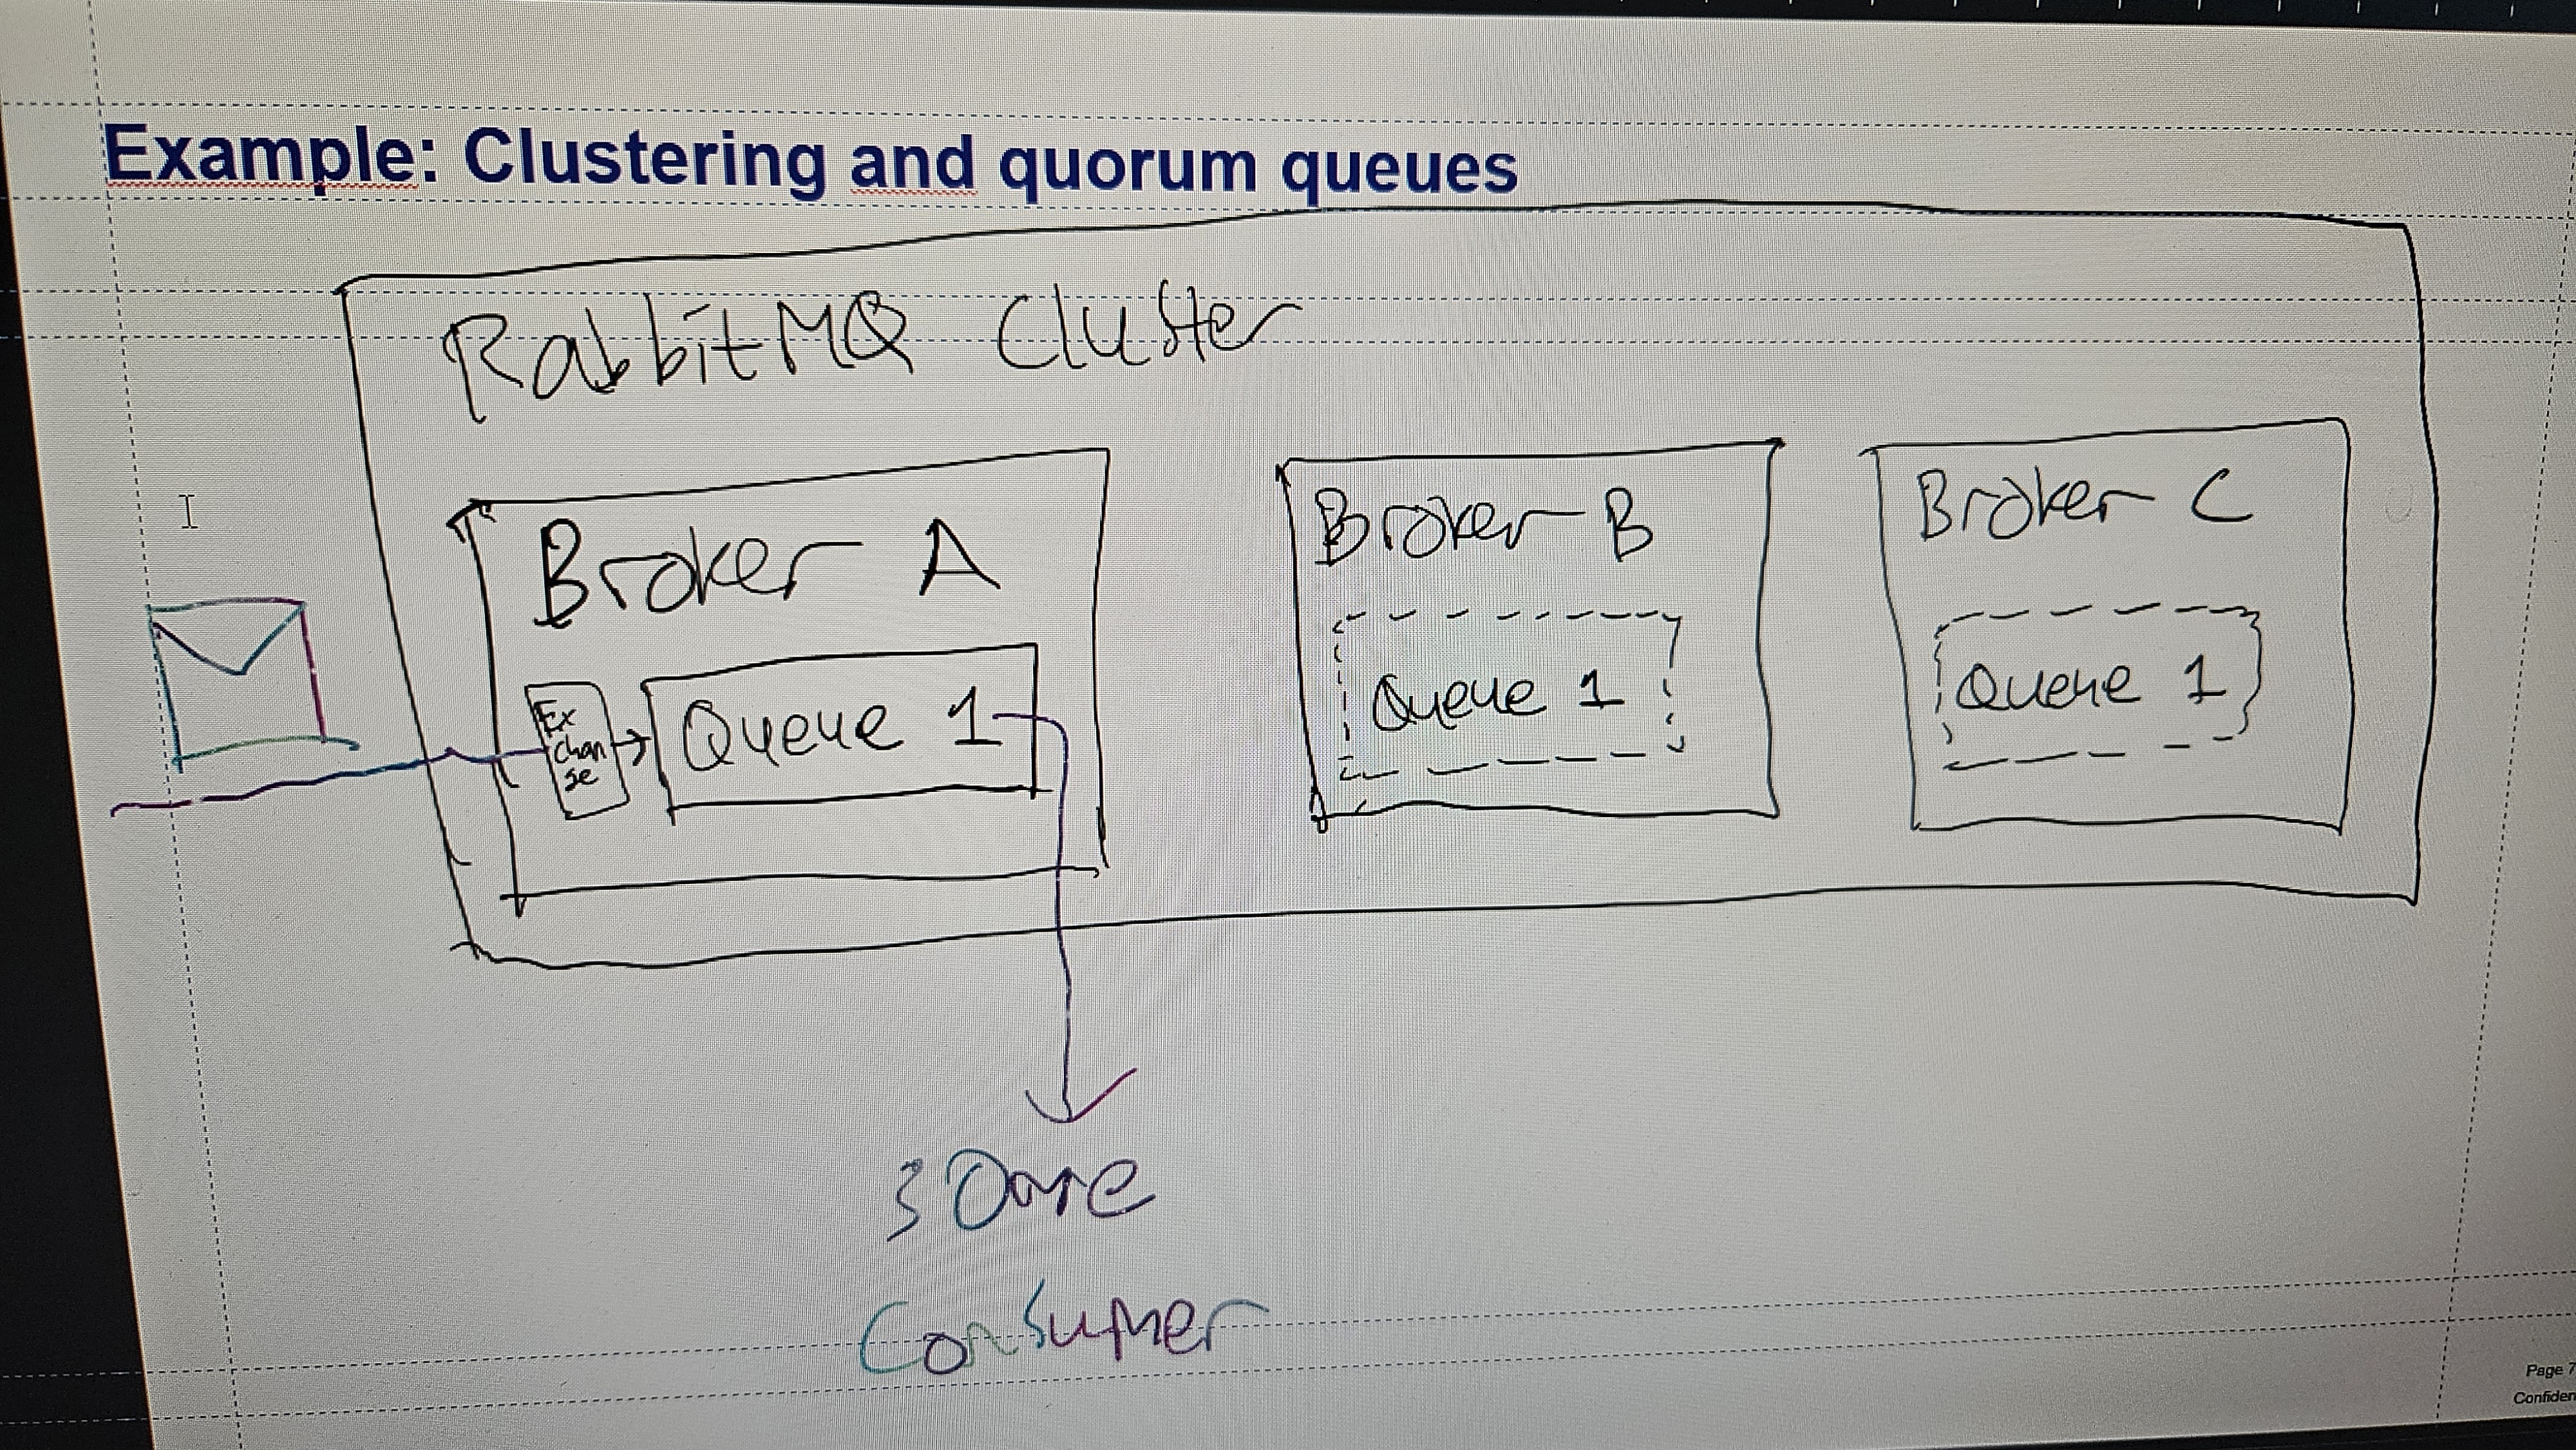 Example: Clustering and quorum queues
RabbitMQ Cluster
Broker A
Ex
chan
ge
Queue 1
Broker B
Queue 1
Broker C
Queue 1
Consumer
Page 7
Confiden